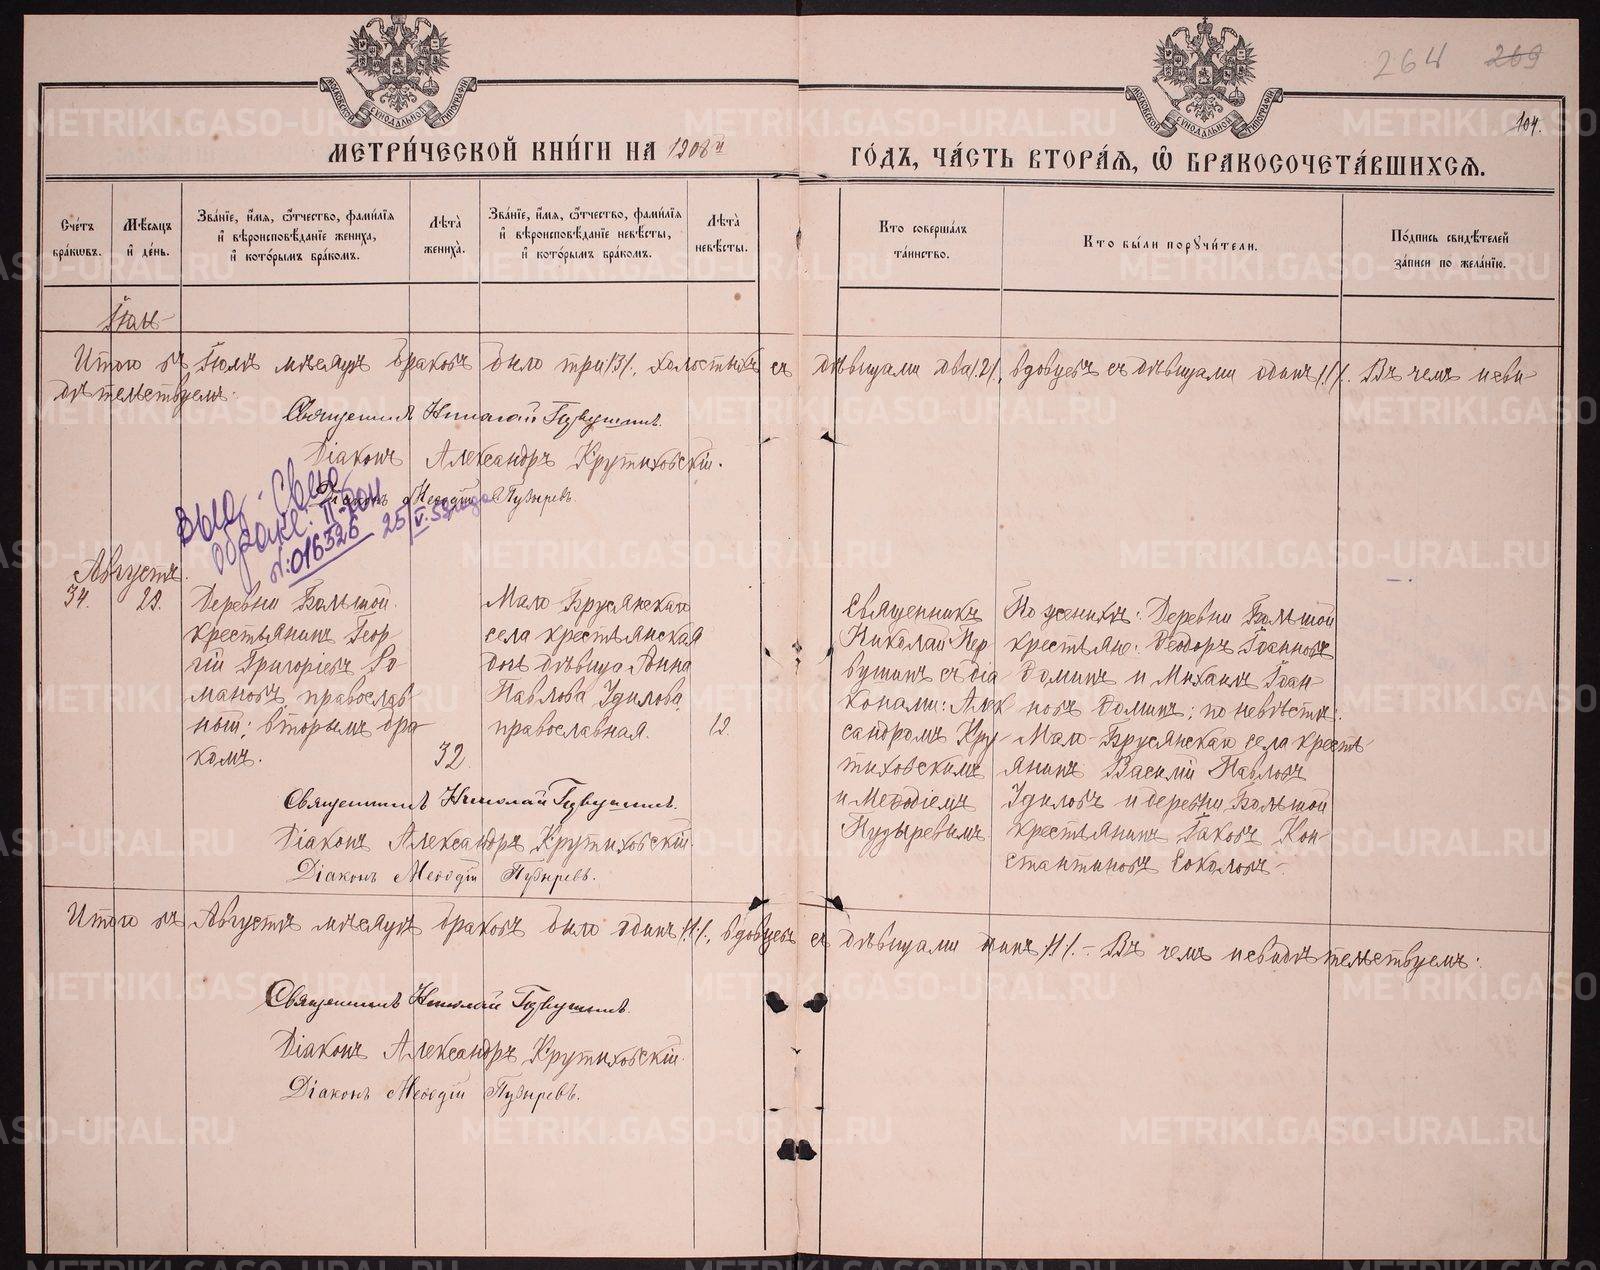 МОСКОВСКОЙ СѴНОДАЛЬНОЙ ТИПОГРАФІИ
МОСКОВСКОЙ СѴНОДАЛЬНОЙ ТИПОГРАФІИ
264 269
104.
МЕТРИ́ЧЕСКОЙ КНИ́ГИ НА 1908й
ГО́ДЪ, ЧА́СТЬ ВТОРА́Я, Ѡ҆ БРАКОСОЧЕТА́ВШИХСЯ.
Сче́тъ бра́кѡвъ.
Мѣ́сяцъ и҆ де́нь.
Зва́ніе, и҆́мя, ѻ҆́тчество, фами́лія и҆ вѣроисповѣ́даніе жениха̀, и҆ кото́рымъ бра́комъ.
Лѣ́та жениха̀.
Зва́ніе, и҆́мя, ѻ҆́тчество, фами́лія и҆ вѣроисповѣ́даніе невѣ́сты, и҆ кото́рымъ бра́комъ.
Лѣ́та невѣ́сты.
Кто соверша́лъ та́инство.
Кто бы́ли поручи́тели.
По́дпись свидѣ́телей за́писи по жела́нію.
Итого въ Іюлѣ мѣсяцѣ браковъ было три /3/, холостыхъ съ дѣвицами два /2/, вдовцевъ съ дѣвицами одинъ /1/. Въ чемъ и сви
дѣтельствуемъ:
Священникъ Николай Первушинъ.
Діаконъ Александръ Крутиховскій.
Діаконъ Меѳодій Пузыревъ.
Выд. Свид.
о браке: II-
№: 016326 25/V.
Августъ.
34.
Деревни Большой
крестьянинъ Геор
гій Григоріевъ Ро
мановъ, православ
ный; вторымъ бра
комъ.
32.
Мало-Брусянскаго
села крестьянская
дочь дѣвица Анна
Павлова Удилова,
православная.
Священникъ
Николай Пер
вушинъ съ діа
конами: Алек
сандромъ Кру
тиховскимъ
и Меѳодіемъ
Пузыревымъ
По женихѣ: Деревни Большой
крестьяне: Ѳеодоръ Іоанновъ
Ѳоминъ и Михаилъ Іоан
новъ Ѳоминъ; по невѣстѣ:
Мало-Брусянскаго села кресть
янинъ Василій Павловъ
Удиловъ и деревни Большой
крестьянинъ Іаковъ Кон
стантиновъ Соколовъ.
Священникъ Николай Первушинъ.
Діаконъ Александръ Крутиховскій.
Діаконъ Меѳодій Пузыревъ.
Итого въ Августѣ мѣсяцѣ браковъ было одинъ /1/, вдовцевъ съ дѣвицами одинъ /1/. – Въ чемъ и свидѣтельствуемъ:
Священникъ Николай Первушинъ.
Діаконъ Александръ Крутиховскій.
Діаконъ Меѳодій Пузыревъ.
METRIKI.GASO-URAL.RU